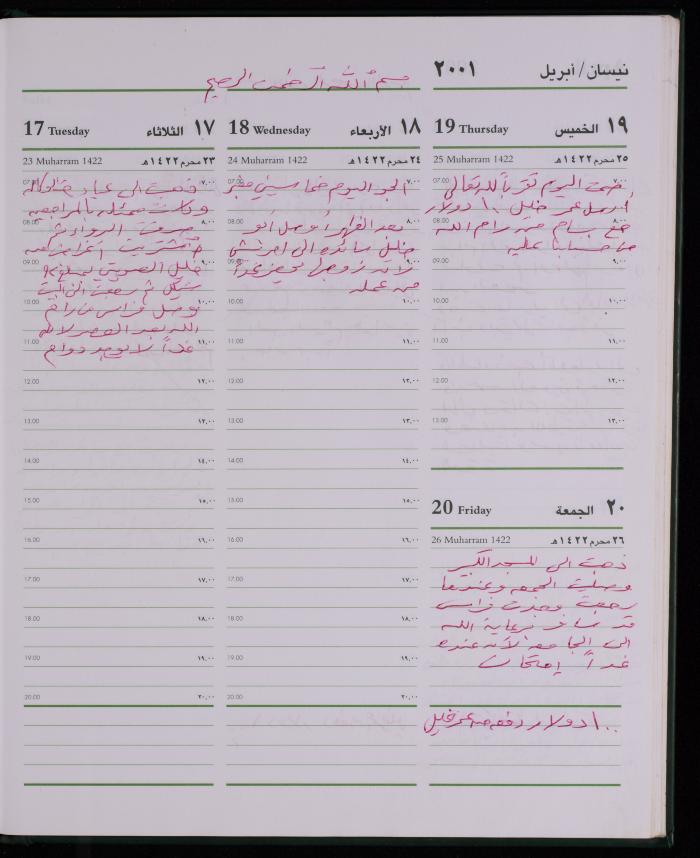 نيسان/أبريل ٢٠٠١
بسم الله الرحمن الرحيم
17 Tuesday الثلاثاء ١٧
23 Muharram 1422 ٢٣ محرم ١٤٢٢هـ
07.00 ٧,٠٠
ذهبت الى عيادة
وكانت ممتلئة بالمراجعين
08.00 ٨,٠٠
صرفت الدواء ثم
اشتريت اغراض من
09.00 ٩,٠٠
خليل الصويتي بمبلغ
شيكل ثم رجعت الى البيت
10.00 ١٠,٠٠
وصل فراس من رام
الله بعد العصر لانه
11.00 ١١,٠٠
غداً لا يوجد دوام
12.00 ١٢,٠٠
13.00 ١٣,٠٠
14.00 ١٤,٠٠
15.00 ١٥,٠٠
16.00 ١٦,٠٠
17.00 ١٧,٠٠
18.00 ١٨,٠٠
19.00 ١٩,٠٠
20.00 ٢٠,٠٠
18 Wednesday الأربعاء ١٨
24 Muharram 1422 ٢٤ محرم ١٤٢٢هـ
07.00 ٧,٠٠
الجو اليوم خماسيني مغبر
08.00 ٨,٠٠
بعد الظهر أوصل أبو
خليل سائده الى
09.00 ٩,٠٠
لانه زوجها يحضر غداً
من عمله
10.00 ١٠,٠٠
11.00 ١١,٠٠
12.00 ١٢,٠٠
13.00 ١٣,٠٠
14.00 ١٤,٠٠
15.00 ١٥,٠٠
16.00 ١٦,٠٠
17.00 ١٧,٠٠
18.00 ١٨,٠٠
19.00 ١٩,٠٠
20.00 ٢٠,٠٠
19 Thursday الخميس ١٩
25 Muharram 1422 ٢٥ محرم ١٤٢٢هـ
07.00 ٧,٠٠
صمت اليوم تقرباً لله تعالى
أرسل عمر خليل ١٠٠ دولار
08.00 ٨,٠٠
مع بسام من رام الله
من حسابنا عليه
09.00 ٩,٠٠
10.00 ١٠,٠٠
11.00 ١١,٠٠
12.00 ١٢,٠٠
13.00 ١٣,٠٠
20 Friday الجمعة ٢٠
26 Muharram 1422 ٢٦ محرم ١٤٢٢هـ
ذهبت الى المسجد الكبير
وصليت الجمعه وعندما
رجعت وجدت فراس
قد سافر برعاية الله
الى الجامعه لأنه عنده
غداً إمتحان
١٠٠ دولار دفعه من عمر خليل